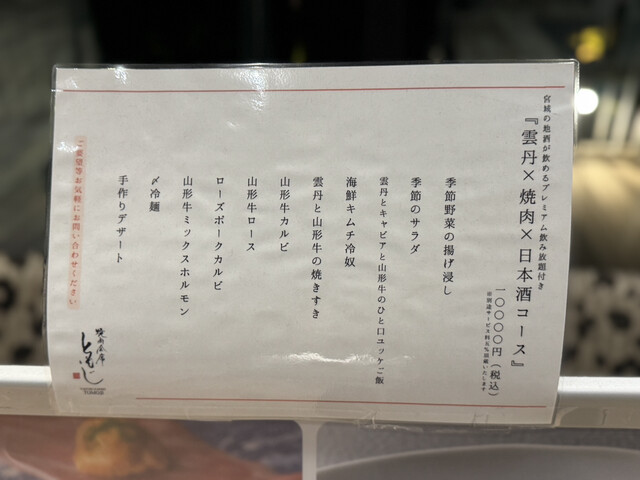 宮城の地酒が飲めるプレミアム飲み放題付き
『雲丹×焼肉×日本酒コース』
一〇〇〇〇円（税込）
※別途サービス料五％頂戴いたします
季節野菜の揚げ浸し
季節のサラダ
雲丹とキャビアと山形牛のひと口ユッケご飯
海鮮キムチ冷奴
雲丹と山形牛の焼きすき
山形牛カルビ
山形牛ロース
ローズポークカルビ
山形牛ミックスホルモン
〆冷麺
手作りデザート
ご要望等お気軽にお問い合わせください